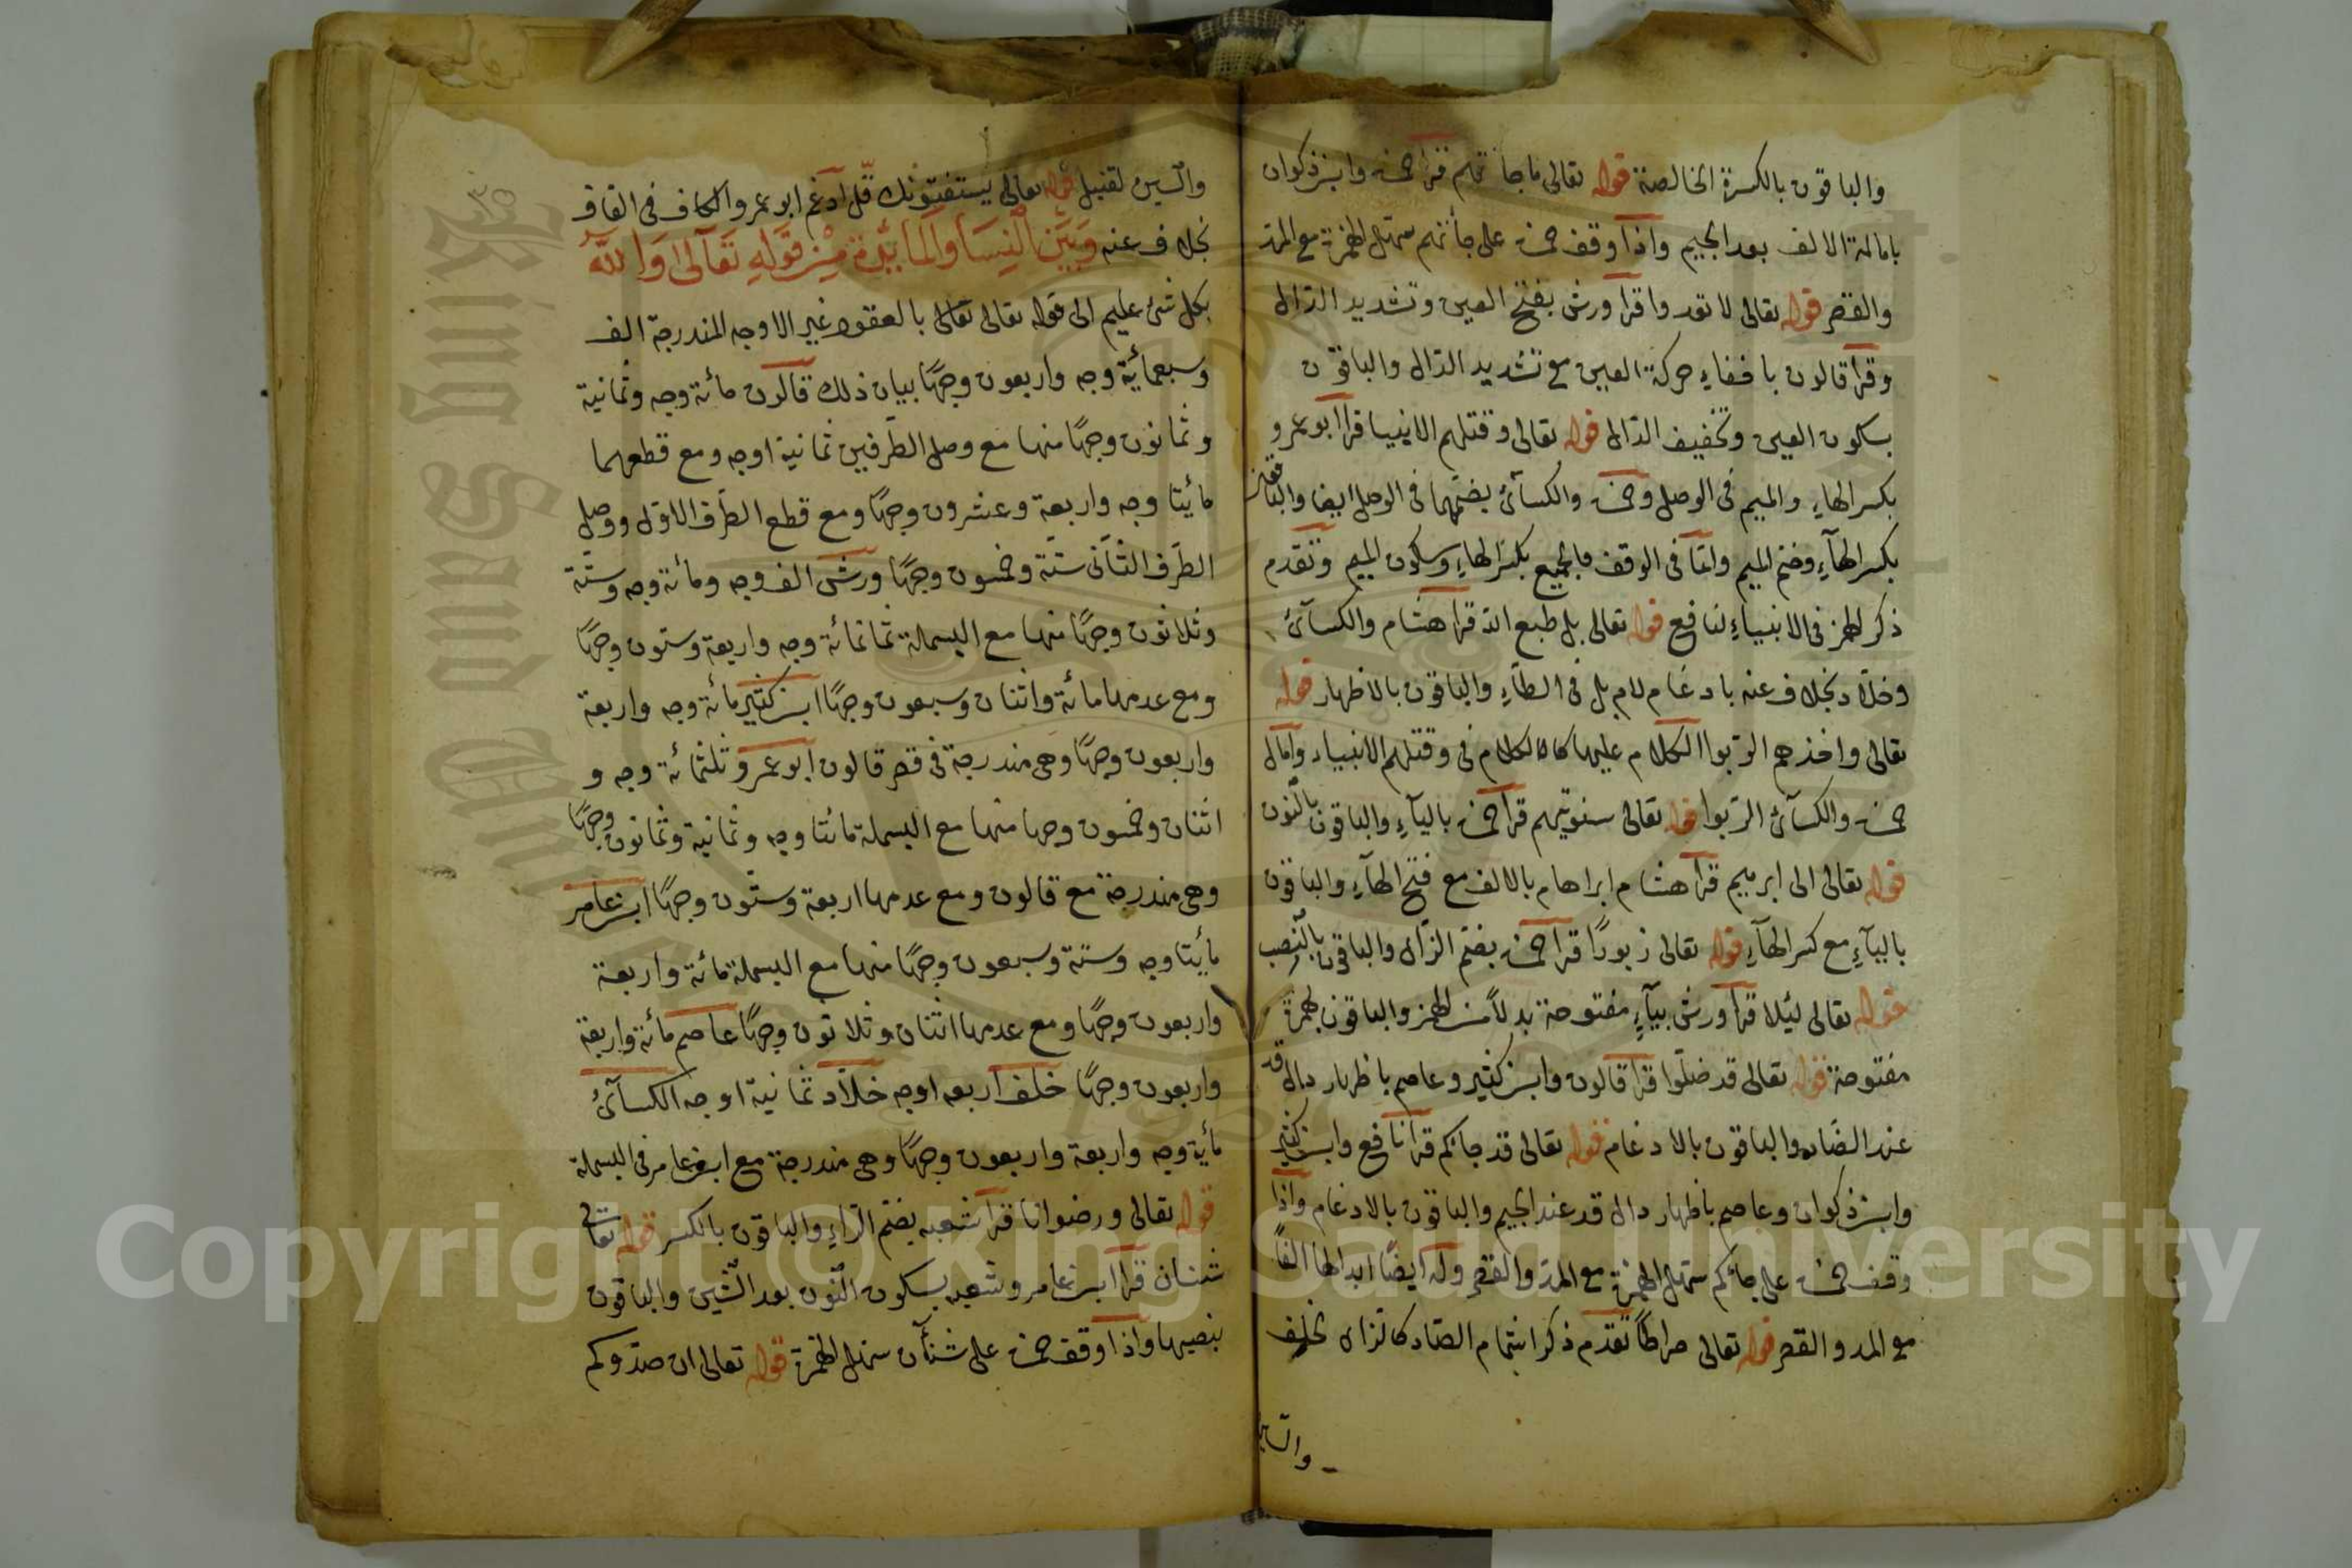 والباقون بالكسرة الخالصة قوله تعالى ما جاءتهم قرأ حمزة وابن ذكوان
بامالة الالف بعد الجيم واذا وقف حمزة على جأتهم سهّل الهمزة مع المد
والقصر قوله تعالى لا تعدوا قرا ورش بفتح العين وتشديد الدّال
وقرأ قالون باخفاءِ حركة العين مع تشديد الدّال والباقون
بسكون العين وتخفيف الدّال قوله تعالى وقتلهم الانبيا قرأ ابو عمرو
بكسر الهاءِ والميم فى الوصل وحمزة والكسآئ بضمّهما فى الوصل ايضا والباقون
بكسر الهآءِ وضم الميم وامّا فى الوقف فالجميع بكسر الهاءِ وسكون الميم وتقدم
ذكر الهمز فى الانبياءِ لنافع قوله تعالى بل طبع الله قرأ هشام والكسآئ
وخلّاد بخلاف عنه بادغام لام بل فى الطآءِ والباقون بالاظهار قوله
تعالى واخذهم الرّبوا الكلام عليها كالكلام فى وقتلهم الانبياء وامال
حمزة والكسآئ الرّبوا قوله تعالى سنوتيهم قرأ حمزة باليآءِ والباقون بالنّون
قوله تعالى الى ابرهيم قرأ هشام ابراهام بالالف مع فتح الهآءِ والباقون
باليآءِ مع كسر الهآءِ قوله تعالى زبورًا قرأ حمزة بضم الزّاى والباقون بالنّصب
قوله تعالى ليئلا قرأ ورش بيآءٍ مفتوحة بدلًا من الهمز والباقون بهمزة
مفتوحة قوله تعالى قد ضلّوا قرأ قالون وابن كثير وعاصم باظهار دال قد
عند الضّاد والباقون بالادغام قوله تعالى قد جائكم قرأ نافع وابن كثير
وابن ذكوان وعاصم باظهار دال قد عند الجيم والباقون بالادغام واذا
وقف حمزة على جاءكم سهّل الهمزة مع المدّ والقصر وله ايضًا ابدالها الفًا
مع المد والقصر قوله تعالى صراطًا تقدم ذكر اشمام الصّاد كالزاى لخلف
والسين
والسّين لقنبل قوله تعالى يستفتونك قل ادغم ابو عمرو الكاف فى القاف
بخلاف عنه وَبَيْنَ النِّسَا وَالْمَائِدَة مِنْ قَوْلِهِ تَعَالَى وَاللهُ
بكل شئ عليم الى قوله تعالى تعالى بالعقود غير الاوجه المندرجة الف
وسبعمائة وجه واربعون وجهًا بيان ذلك قالون مائة وجه وثمانية
وثمانون وجهًا منها مع وصل الطّرفين ثمانية اوجه ومع قطعهما
مائيتا وجه واربعة وعشرون وجهًا ومع قطع الطّرف الاوّل ووصل
الطّرف الثّانى ستّة وخمسون وجهًا ورش الف وجه ومائة وجه وستّة
وثلاثون وجهًا منها مع البسملة ثمانمائة وجه واربعة وستون وجهًا
ومع عدمها مائة واثنان وسبعون وجهًا ابن كثير مائة وجه واربعة
واربعون وجهًا وهى مندرجة فى قصر قالون ابو عمرو ثلثمائة وجه و
اثنان وخمسون وجها منها مع البسملة مائتا وجه وثمانية وثمانون وجهًا
وهى مندرجة مع قالون ومع عدمها اربعة وستّون وجهًا ابن عامر
مائيتا وجه وستة وسبعون وجهًا منها مع البسملة مائة واربعة
واربعون وجهًا ومع عدمها اثنان وثلاثون وجهًا عاصم مائة واربعة
واربعون وجهًا خلف اربعه اوجه خلّاد ثمانية اوجه الكسآئ
مائة وجه واربعة واربعون وجهًا وهى مندرجة مع ابن عامر فى البسملة
قوله تعالى ورضوانا قرأ شعبه بضم الرّاءِ والباقون بالكسر قوله تعالى
شنان قرأ ابن عامر وشعبه بسكون النّون بعد الشّين والباقون
بنصبها واذا وقف حمزة على شنآن سهل الهمزة قوله تعالى ان صدّوكم
Copyright © King Saud University